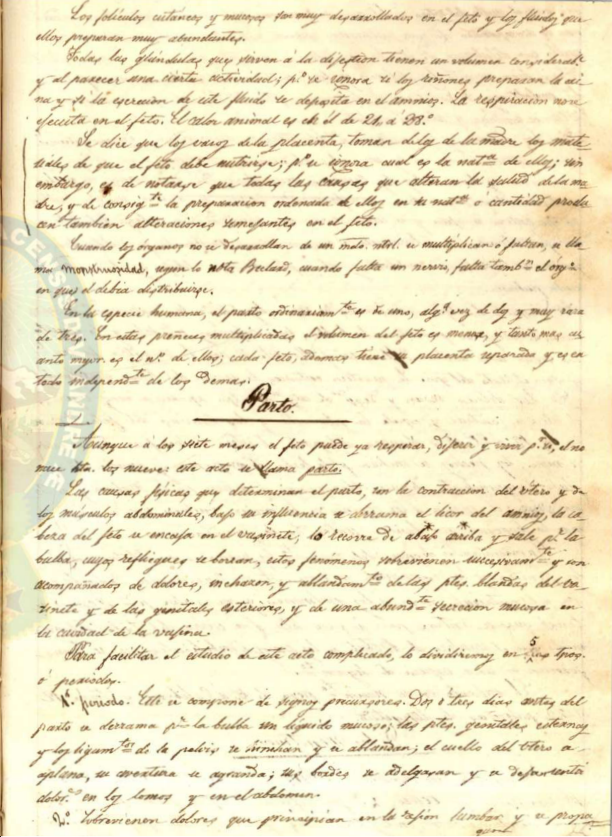 Los folículos cutáneos y mucosos son muy desarrollados en el feto y los fluidos que
ellos preparan muy abundantes.
Todas las glándulas que sirven á la dijestion tienen un volumen considerab.e
y al parecer una cierta actividad; p.o se ignora si los riñones preparan la ori
na y si la escrecion de este fluido se deposita en el amnios. La respiracion no se
ejecuta en el feto. El calor animal es en el de 24 á 28.o
Se dice que los vasos de la placenta, toman de los de la madre los mate
riales de que el feto debe nutrirse; p.o se ignora cual es la nat.za de ellos; sin
embargo, es de notarse que todas las causas que alteran la salud de la ma
dre, y de consig.te la preparacion ordenada de ellos en su nat.za o cantidad produ
cen tambien alteraciones semejantes en el feto.
Cuando los órganos no se desarrollan de un mdo. ntrl. se multiplican ó faltan, se lla
ma monstruosidad, segun lo nota Beclard, cuando falta un nervio, falta tamb.n el org.o
en que el debia distribuirse.
En la especie humana, el parto ordinariam.te es de uno, alg.a vez de dos y muy rara
de tres. En estas preñeces multiplicadas el volumen del feto es menor, y tanto mas cu
anto mayor es el n.o de ellos; cada feto, ademas tiene su placenta separada y es en
todo independ.te de los demas.
Parto.
Aunque a los siete meses el feto puede ya respirar, dijerir y vivir p.r si, el no
nace hta. los nueve este acto se llama parto.
Las causas fisicas que determinan el parto, son la contraccion del útero y de
los músculos abdominales, bajo su influencia se derrama el licor del amnios, la ca
beza del feto se encaja en el vasinete, lo recorre de abajo arriba y sale p.r la
bulba, cuyos repliegues se borran, estos fenómenos sobrevienen sucesivam.te y son
acompañados de dolores, inchazon, y ablandam.to de las ptes. blandas del va
sinete y de las genitales esteriores, y de una abund.te secrecion mucosa en
la cavidad de la vajina.
Para facilitar el estudio de este acto complicado, lo dividiremos en 5 tpos.
ó periodos.
1.o periodo. Este se compone de signos precursores. Dos ó tres dias antes del
parto se derrama p.r la bulba un líquido mucoso; las ptes. genitales esternas
y los ligam.tos de la pelvis se hinchan y se ablandan; el cuello del útero se
aplana, su avertura se agranda; sus bordes se adelgasan y se dejan sentir
dolor.s en los lomos y en el abdomen.
2.o Sobrevienen dolores que prinsipian en la rejion lumbar y se propa